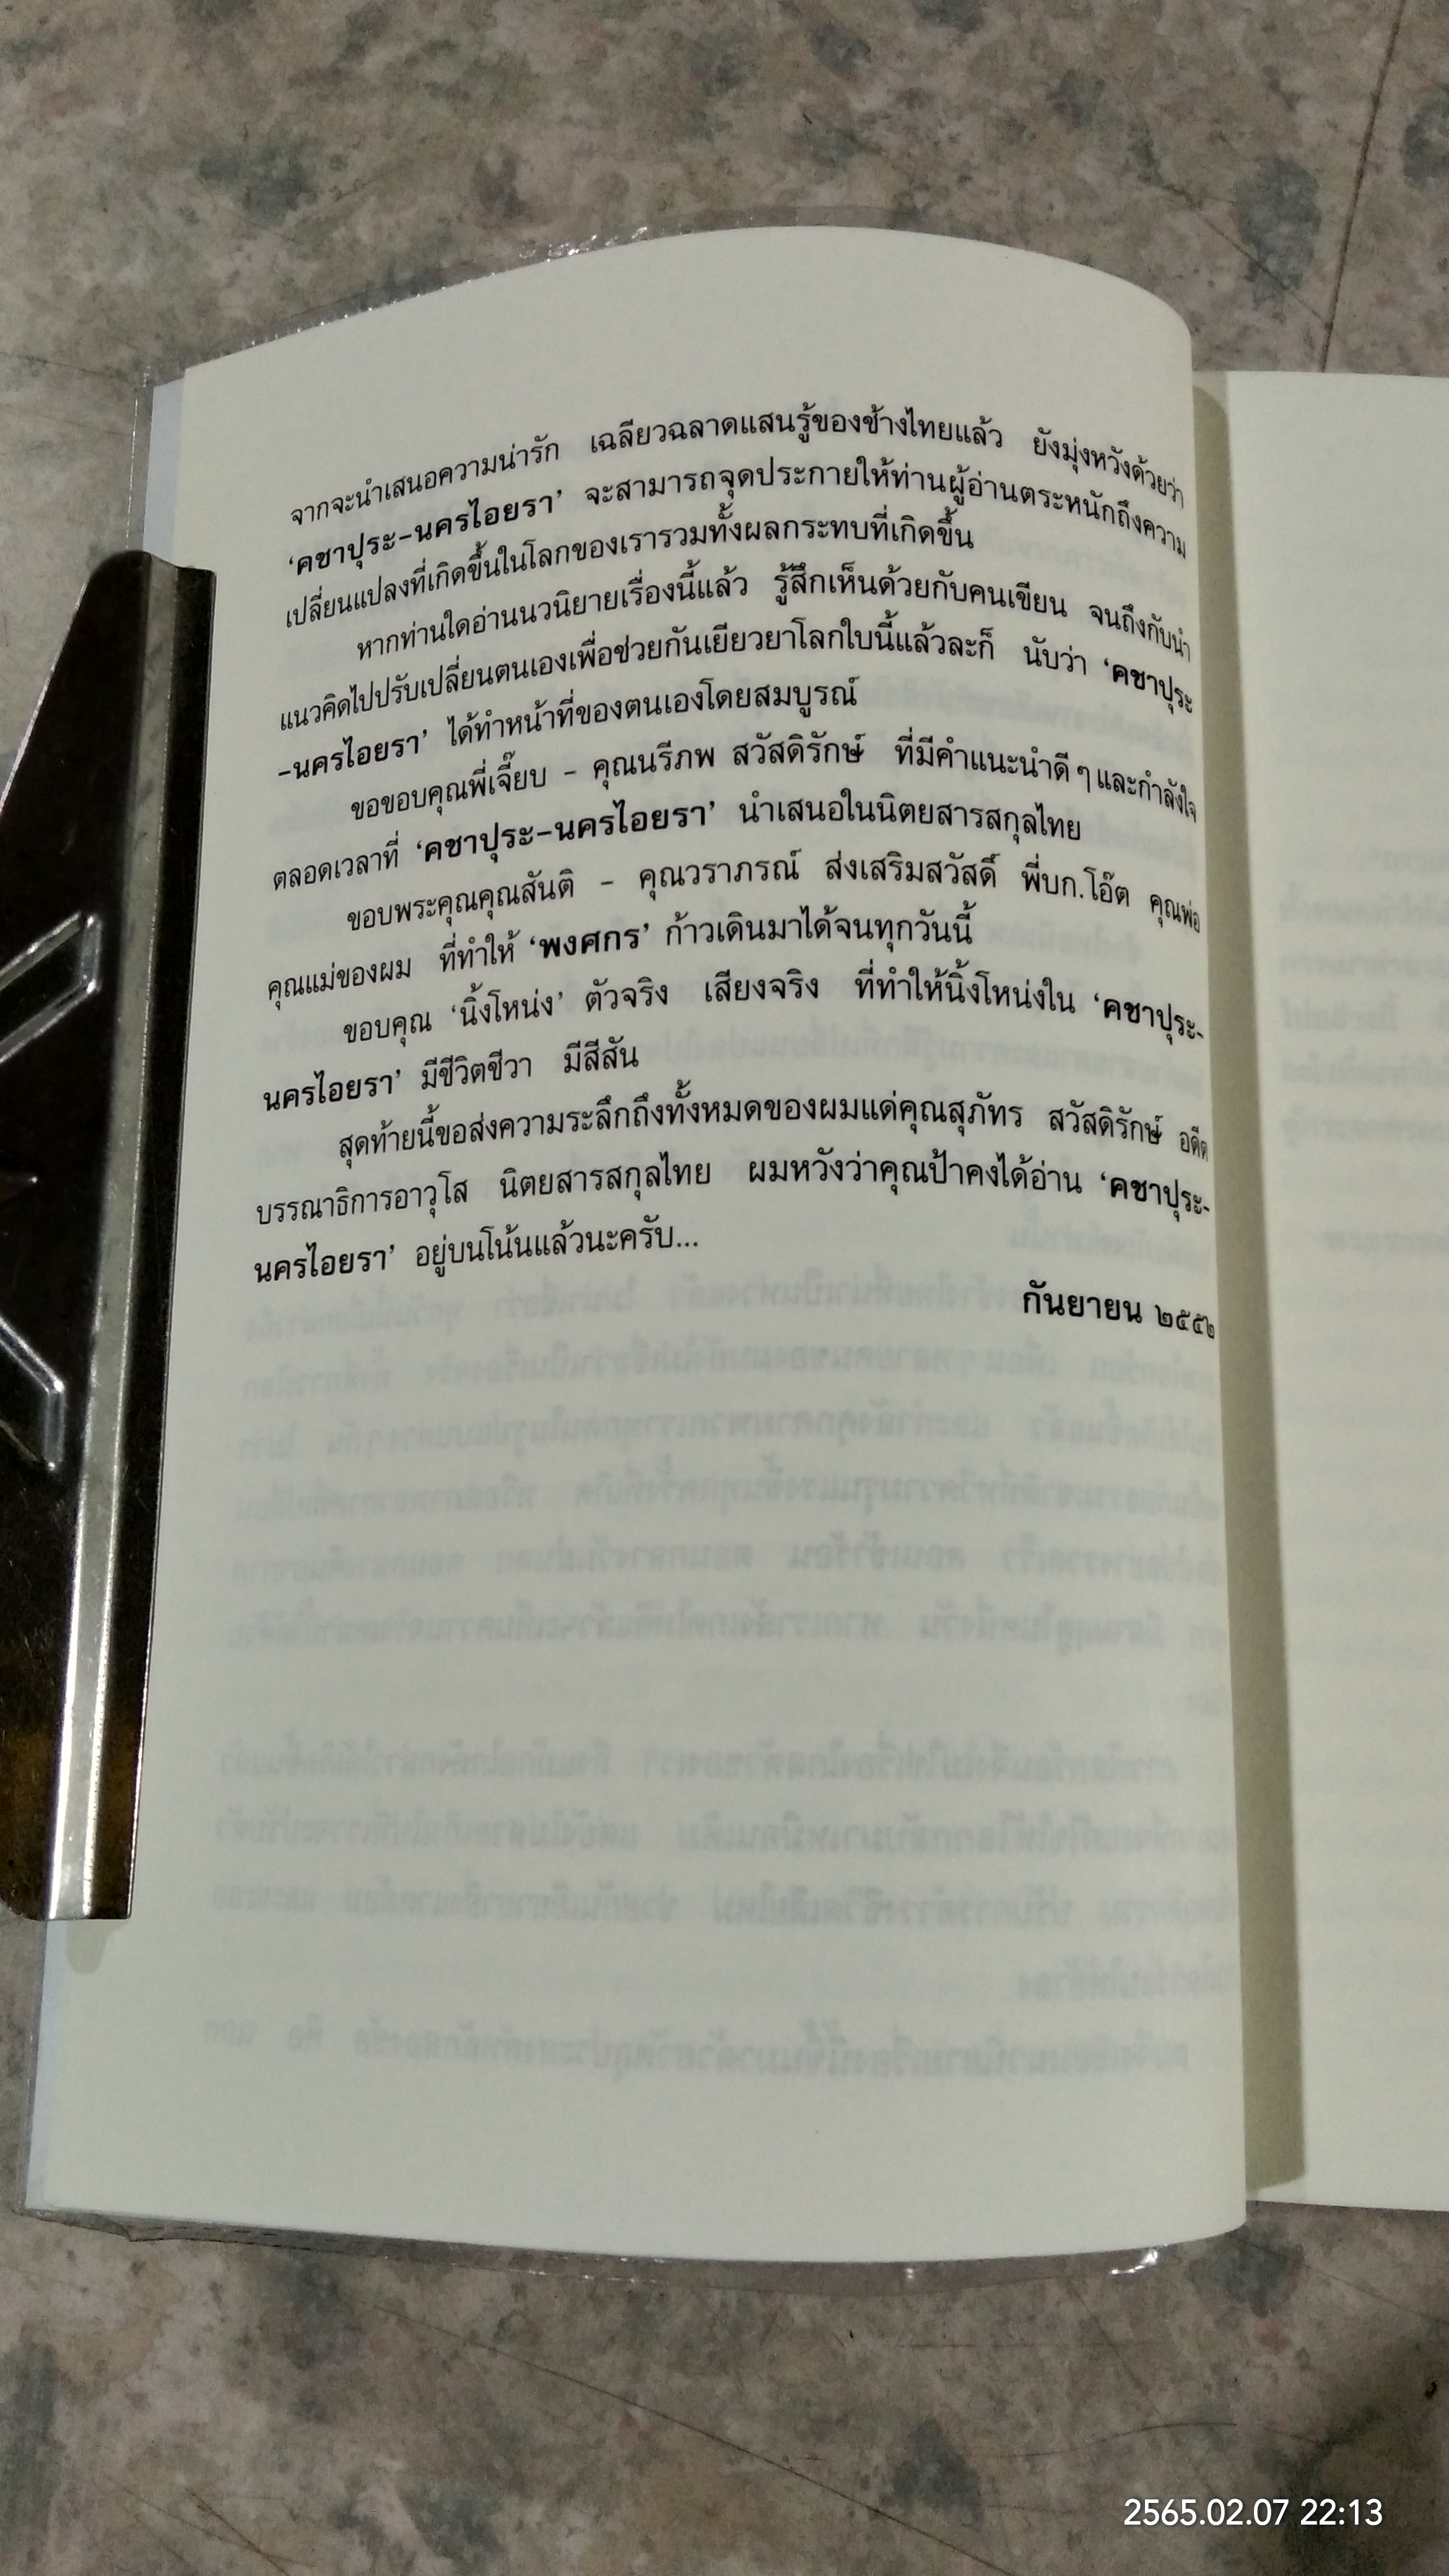 จากจะนำเสนอความน่ารัก เฉลียวฉลาดแสนรู้ของช้างไทยแล้ว ยังมุ่งหวังด้วยว่า
‘คชาปุระ-นครไอยรา’ จะสามารถจุดประกายให้ท่านผู้อ่านตระหนักถึงความ
เปลี่ยนแปลงที่เกิดขึ้นในโลกของเรารวมทั้งผลกระทบที่เกิดขึ้น
หากท่านใดอ่านนวนิยายเรื่องนี้แล้ว รู้สึกเห็นด้วยกับคนเขียน จนถึงกับนำ
แนวคิดไปปรับเปลี่ยนตนเองเพื่อช่วยกันเยียวยาโลกใบนี้แล้วละก็ นับว่า ‘คชาปุระ
-นครไอยรา’ ได้ทำหน้าที่ของตนเองโดยสมบูรณ์
ขอขอบคุณพี่เจี๊ยบ - คุณนรีภพ สวัสดิรักษ์ ที่มีคำแนะนำดีๆ และกำลังใจ
ตลอดเวลาที่ ‘คชาปุระ-นครไอยรา’ นำเสนอในนิตยสารสกุลไทย
ขอบพระคุณคุณสันติ - คุณวราภรณ์ ส่งเสริมสวัสดิ์ พี่บก.โอ๊ต คุณพ่อ
คุณแม่ของผม ที่ทำให้ ‘พงศกร’ ก้าวเดินมาได้จนทุกวันนี้
ขอบคุณ ‘นิ้งโหน่ง’ ตัวจริง เสียงจริง ที่ทำให้นิ้งโหน่งใน ‘คชาปุระ-
นครไอยรา’ มีชีวิตชีวา มีสีสัน
สุดท้ายนี้ขอส่งความระลึกถึงทั้งหมดของผมแด่คุณสุภัทร สวัสดิรักษ์ อดีต
บรรณาธิการอาวุโส นิตยสารสกุลไทย ผมหวังว่าคุณป้าคงได้อ่าน ‘คชาปุระ-
นครไอยรา’ อยู่บนโน้นแล้วนะครับ...
กันยายน ๒๕๕๒
2565.02.07 22:13